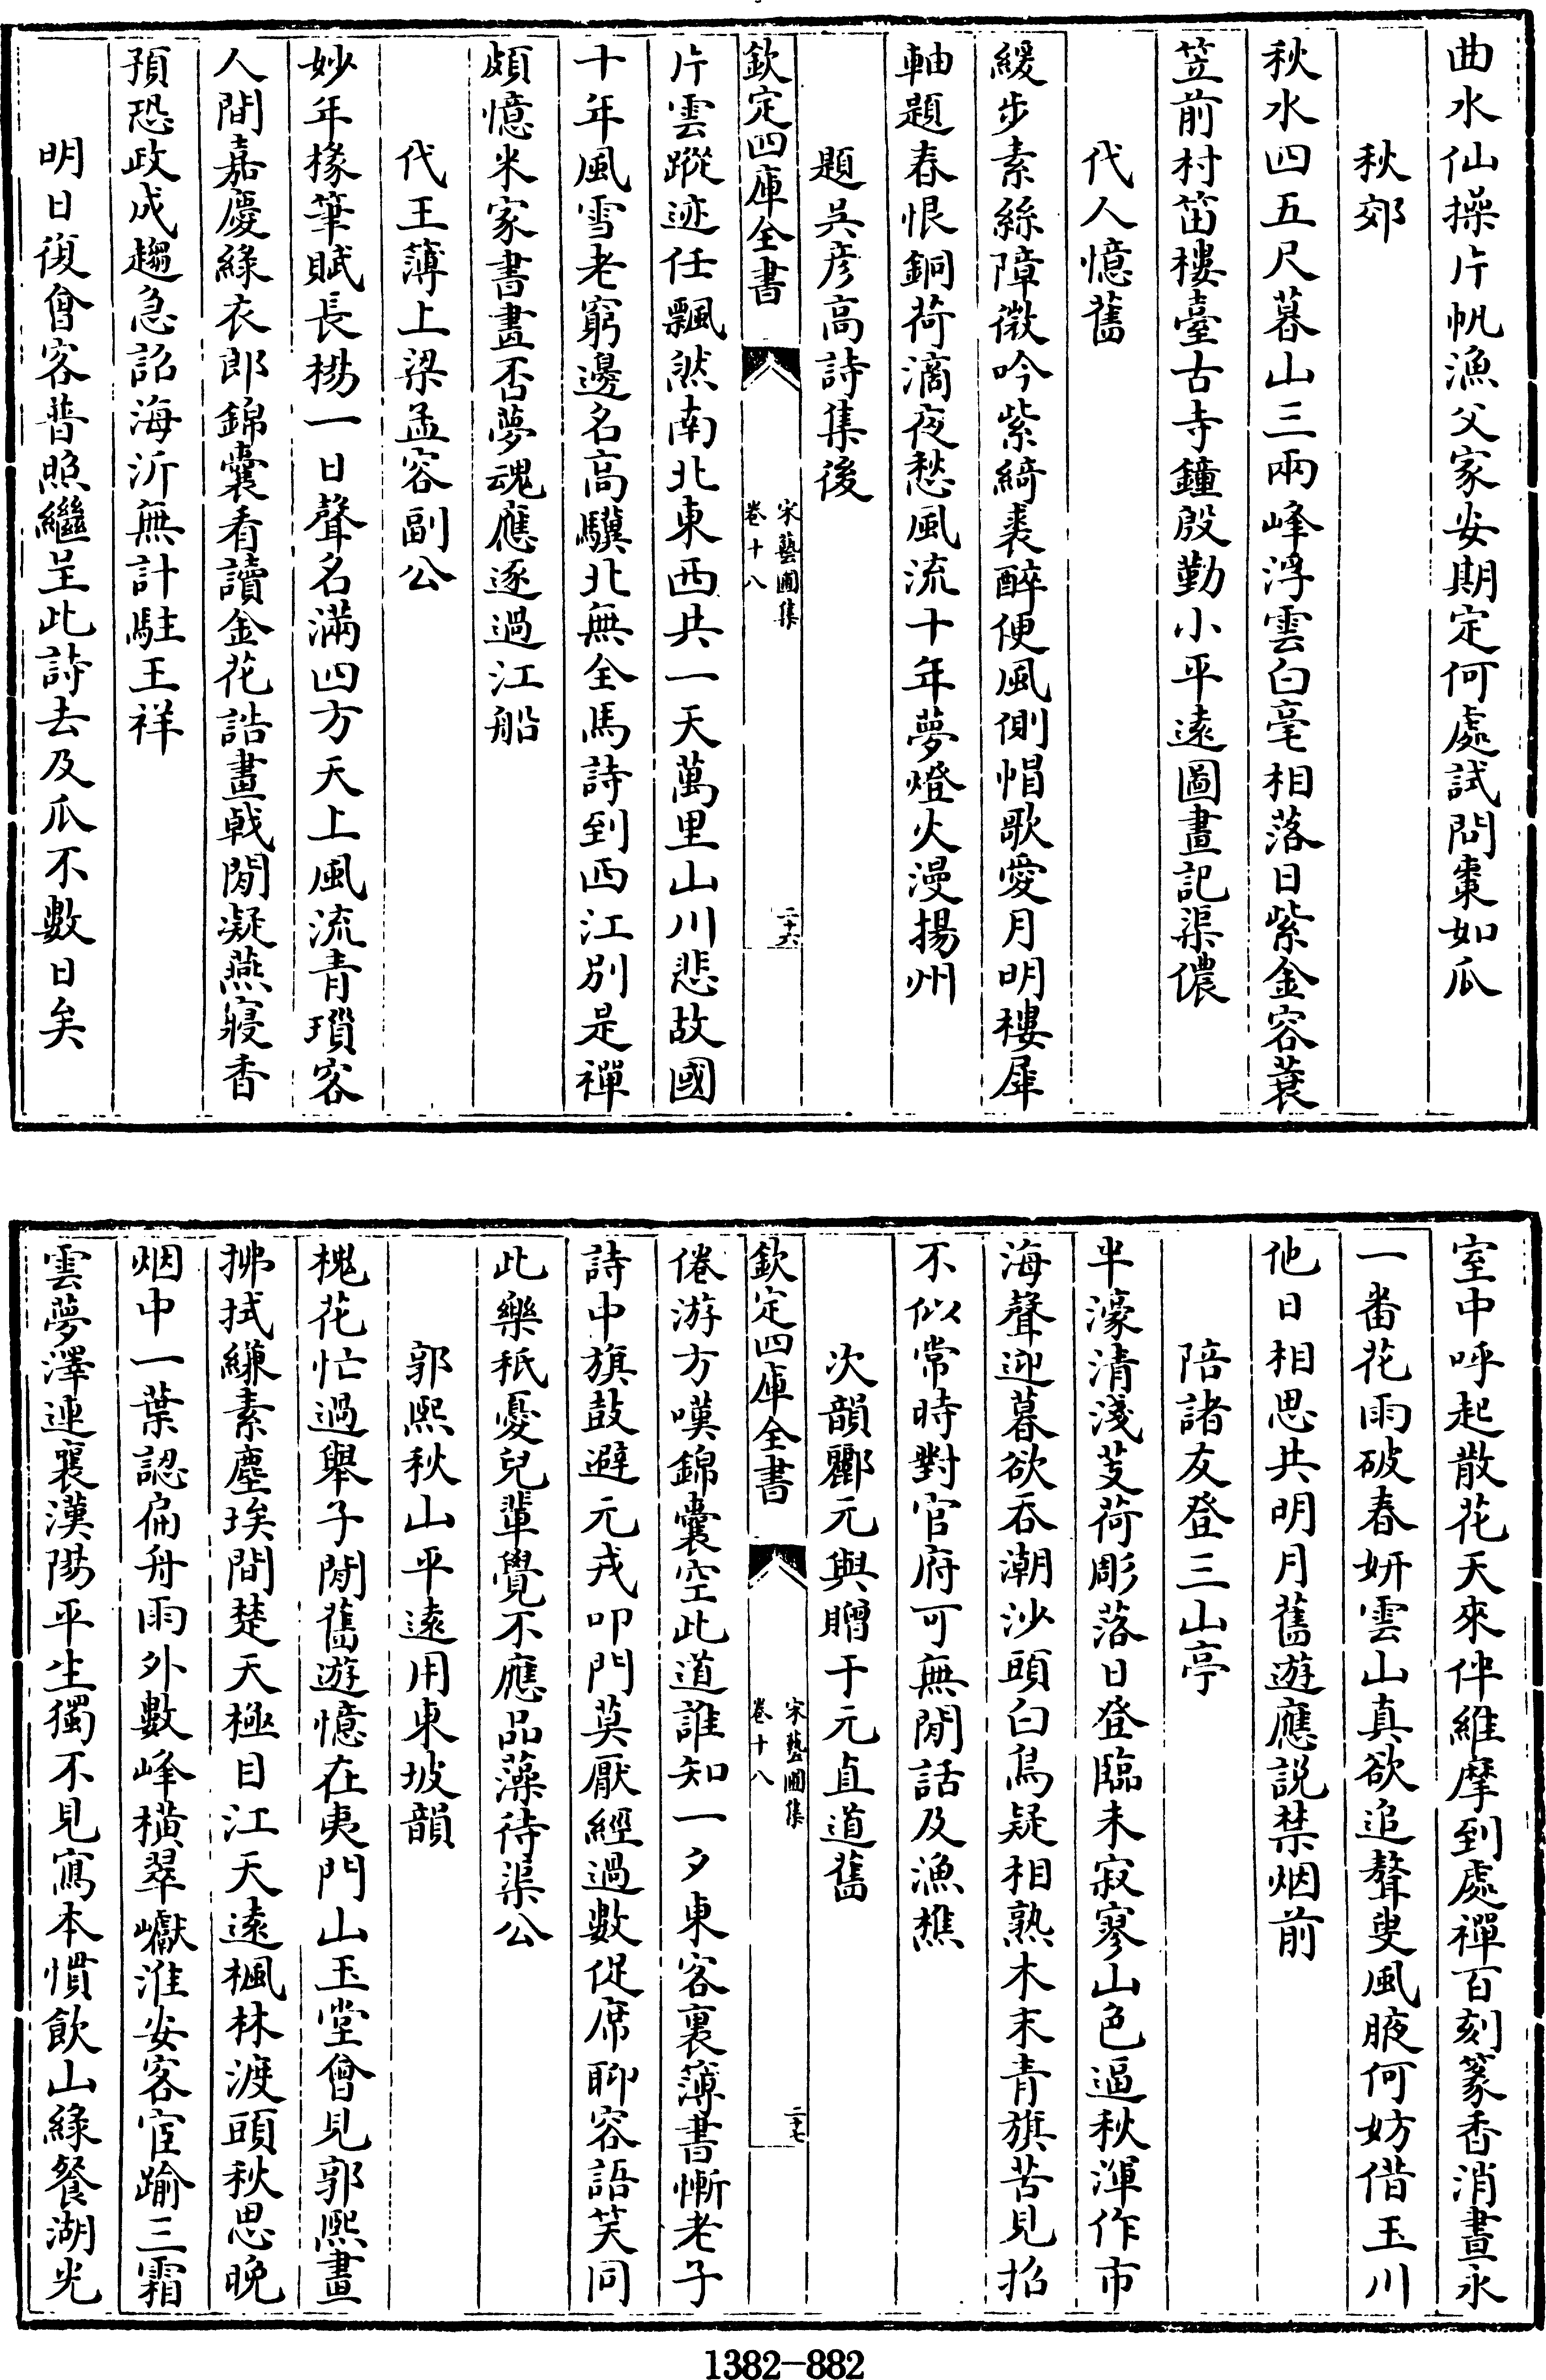 曲水仙操片帆漁父家安期定何處試問棗如瓜
秋郊
秋水四五尺暮山三兩峰浮雲白毫相落日紫金容蓑
笠前村笛樓臺古寺鐘殷勤小平遠圖畫記渠儂
代人憶舊
緩步素絲障微吟紫綺裘醉便風側帽歌愛月明樓犀
軸題春恨銅荷滴夜愁風流十年夢燈火漫揚州
題吳彦高詩集後
欽定四庫全書
宋藝圃集
卷十八
二十六
片雲蹤迹任飄然南北東西共一天萬里山川悲故國
十年風雪老窮邊名高驥北無全馬詩到西江別是禪
頗憶米家書畫否夢魂應逐過江船
代王簿上梁孟容副公
妙年椽筆賦長楊一日聲名滿四方天上風流青瑣客
人間嘉慶緑衣郎錦囊看讀金花誥畫戟閒凝燕寢香
預恐政成趨急詔海沂無計駐王祥
明日復會客普照繼呈此詩去及瓜不數日矣
室中呼起散花天來伴維摩到處禪百刻篆香消晝永
一畨花雨破春妍雲山真欲追聱叟風腋何妨借玉川
他日相思共明月舊遊應説禁烟前
陪諸友登三山亭
半濠清淺芰荷彫落日登臨未寂寥山色逼秋渾作市
海聲迎暮欲吞潮沙頭白鳥疑相熟木末青旗苦見招
不似常時對官府可無閒話及漁樵
次韻酈元與贈于元直道舊
欽定四庫全書
宋藝圃集
卷十八
二十七
倦游方嘆錦囊空此道誰知一夕東客裏簿書慚老子
詩中旗鼓避元戎叩門莫厭經過數促席聊容語笑同
此樂秖憂兒輩覺不應品藻待渠公
郭熙秋山平遠用東坡韻
槐花忙過舉子閒舊遊憶在夷門山玉堂曾見郭熙畫
拂拭縑素塵埃間楚天極目江天遠楓林渡頭秋思晚
烟中一葉認扁舟雨外數峰橫翠巘淮安客宦踰三霜
雲夢澤連襄漢陽平生獨不見寫本慣飲山緑餐湖光
1382-882